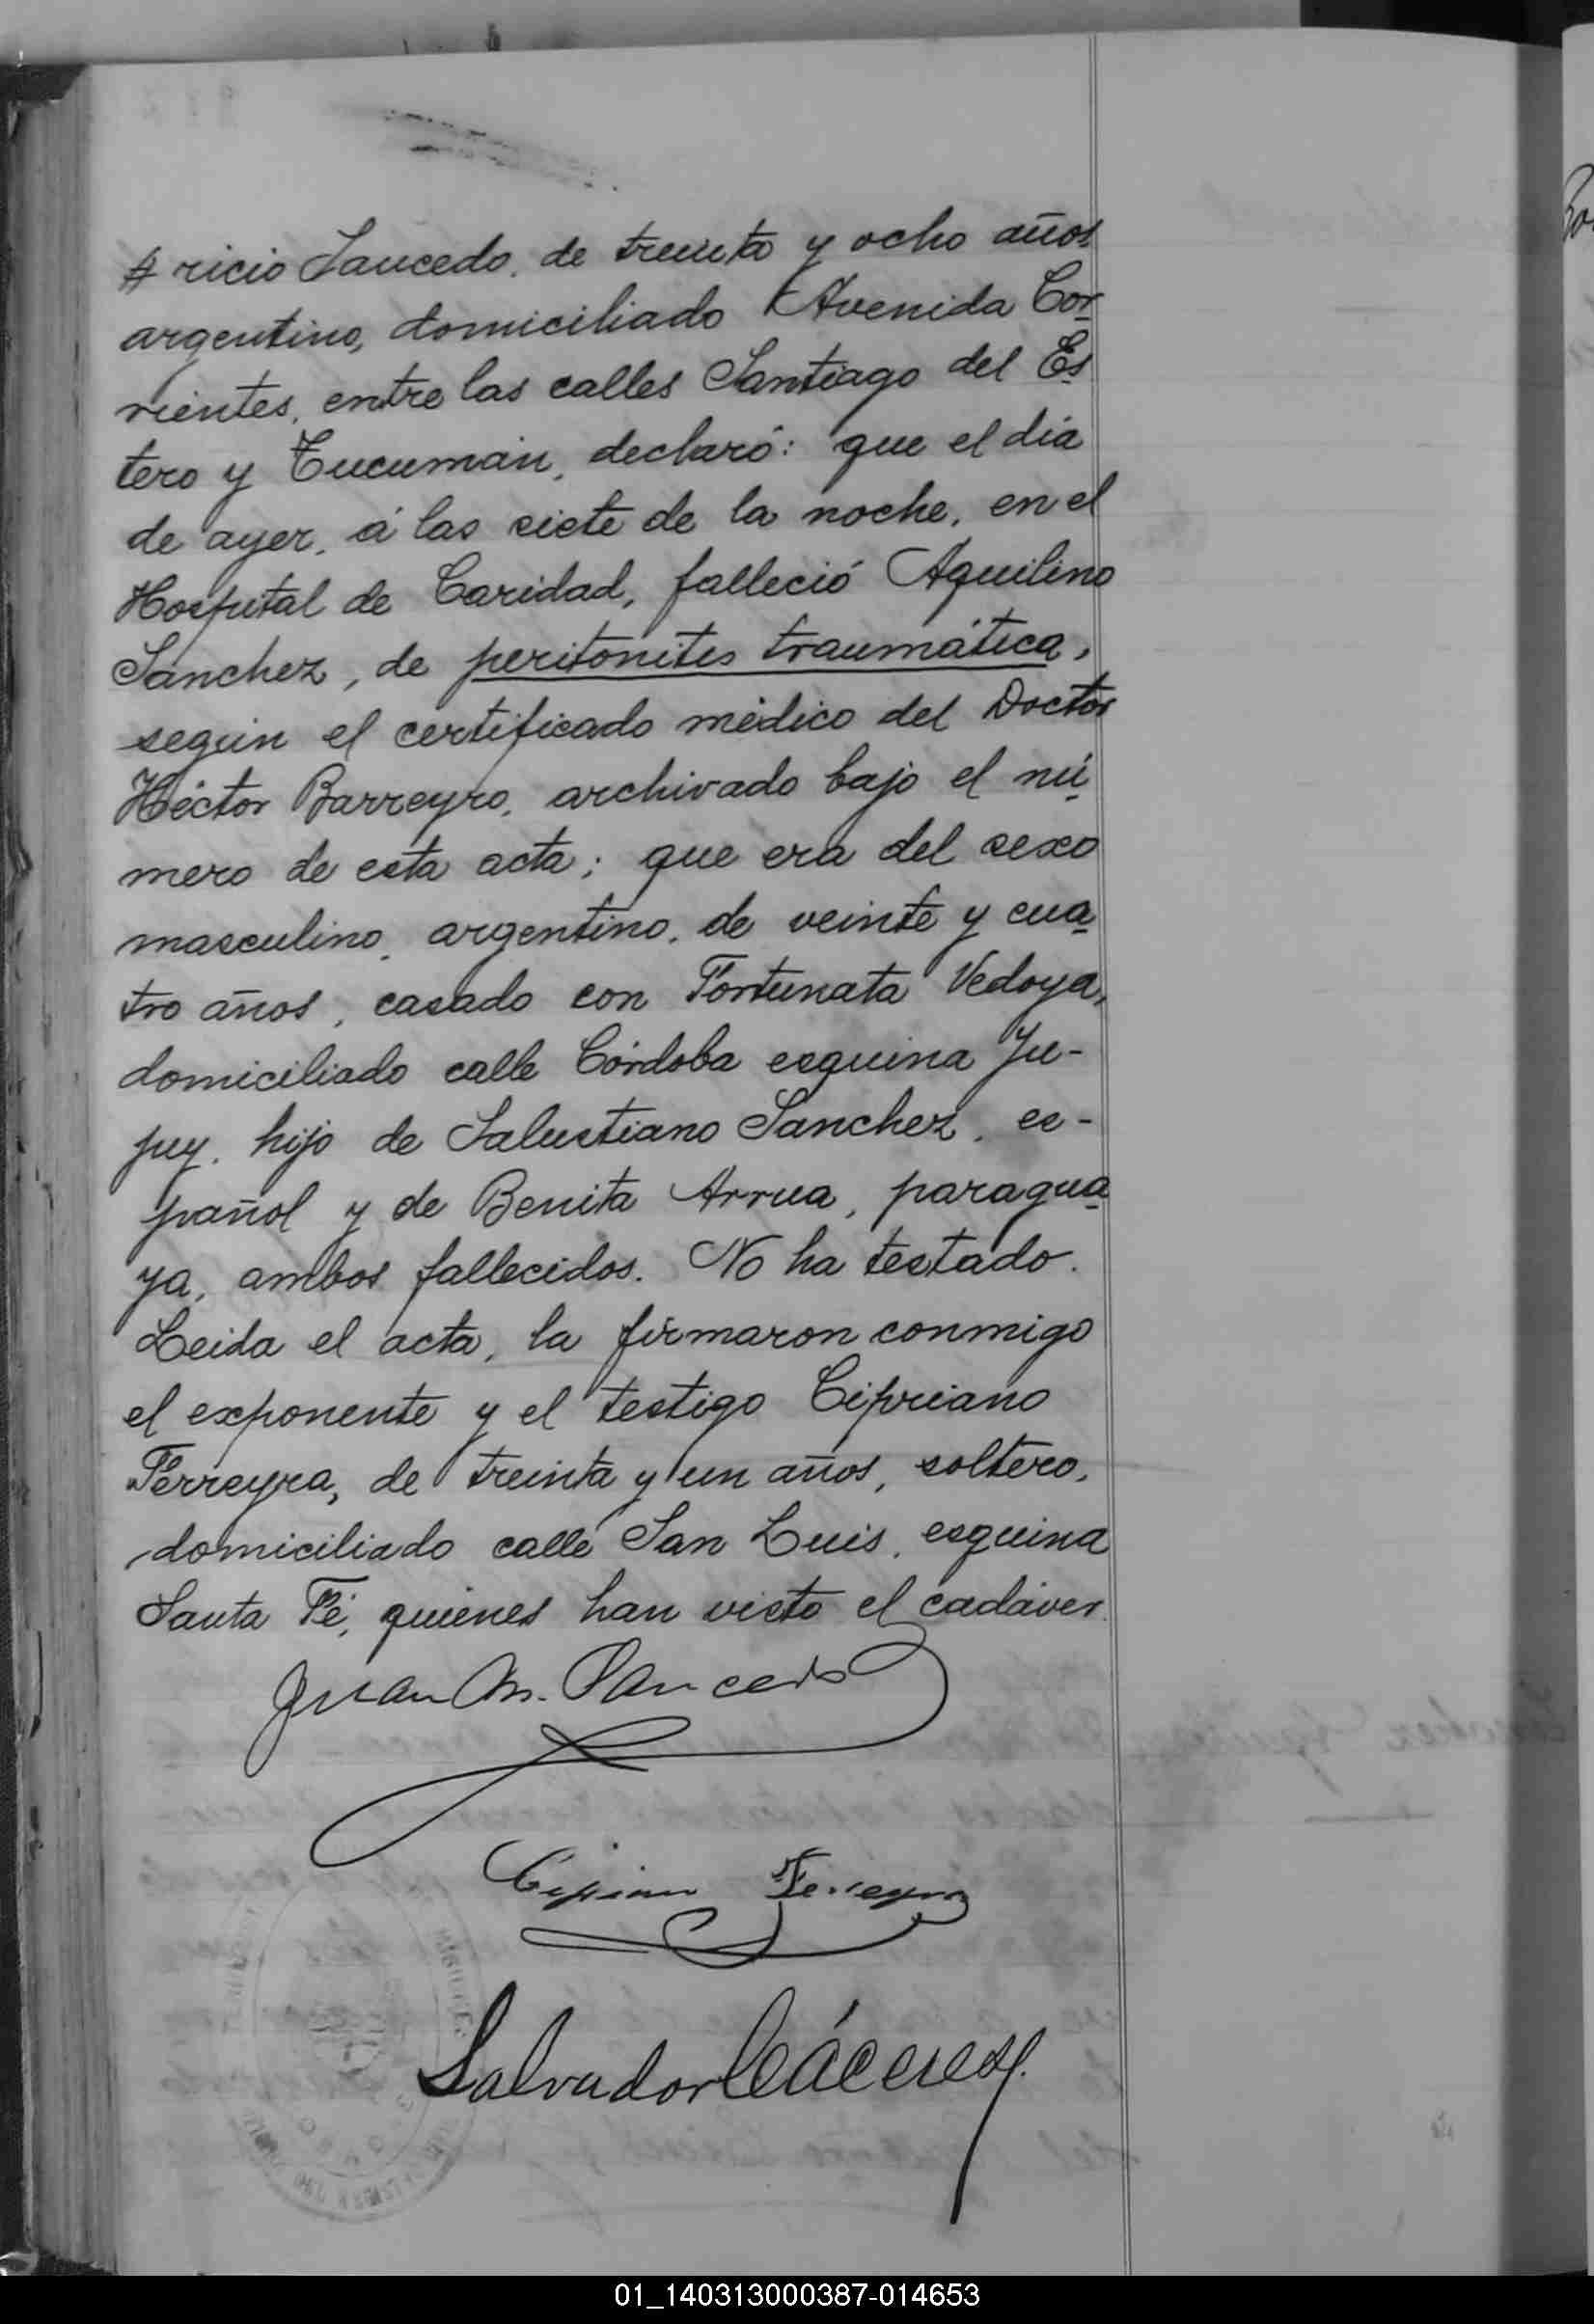 ricio Saucedo, de treinta y ocho años
argentino, domiciliado Avenida Cor
rientes, entre las calles Santiago del Es
tero y Tucumán, declaró: que el dia
de ayer, á las siete de la noche, en el
Hospital de Caridad, falleció Aquilino
Sanchez, de peritonites traumática,
según el certificado médico del Doctor
Héctor Barreyro, archivado bajo el nú
mero de esta acta; que era del sexo
masculino, argentino, de veinte y cua
tro años, casado con Fortunata Vedoya,
domiciliado calle Córdoba esquina Ju-
juy, hijo de Salustiano Sanchez, es-
pañol y de Benita Arrua, paragua
ya, ambos fallecidos. No ha testado.
Leida el acta, la firmaron conmigo
el exponente y el testigo Cipriano
Ferreyra, de treinta y un años, soltero,
domiciliado calle San Luis, esquina
Santa Fé, quienes han visto el cadáver.
Juan M. Saucedo
Cipriano Ferreyra
Salvador Cáceres
01_140313000387-014653